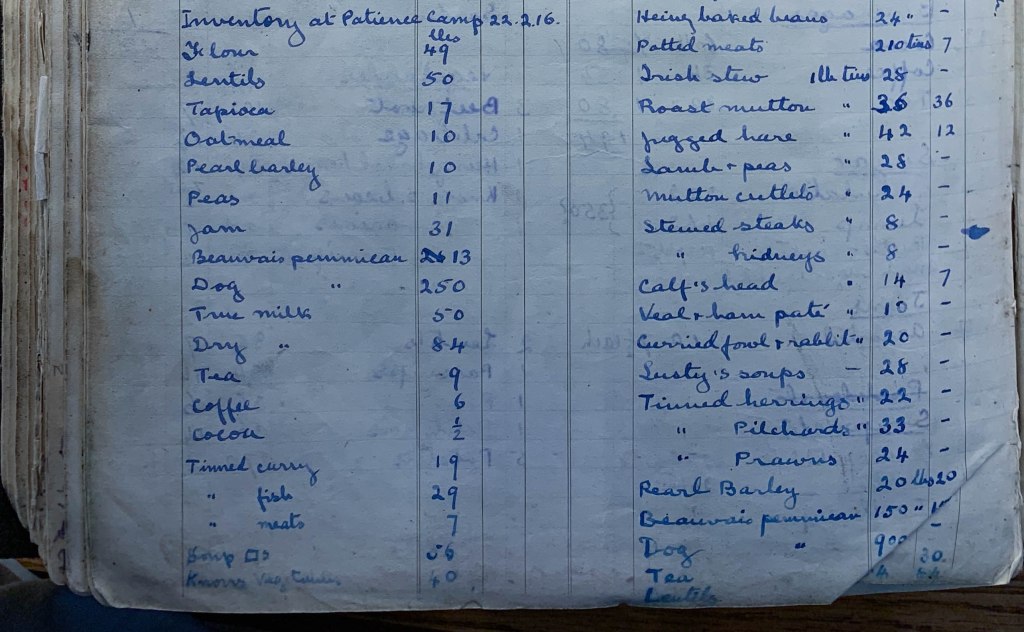 Inventory at Patience Camp 22.2.16.
lbs
Flour 49
Lentils 50
Tapioca 17
Oatmeal 10
Pearl barley 10
Peas 11
Jam 31
Beauvais pemmican 13
Dog " 250
True milk 50
Dry " 84
Tea 9
Coffee 6
Cocoa ½
Tinned curry 19
" fish 29
" meats 7
Soup □s 56
Knorrs Vegetables 40
Heinz baked beans 24 " -
Potted meats 210 tins 7
Irish stew 1lb tins 28 -
Roast mutton " 36 36
Jugged hare " 42 12
Lamb + peas " 28 -
Mutton cutlets " 24 -
Stewed steaks " 8 -
" kidneys " 8 -
Calf's head " 14 7
Veal + ham paté " 10 -
Curried fowl + rabbit " 20 -
Lusty's soups - 28 -
Tinned herrings " 22 -
" Pilchards " 33 -
" Prawns 24 -
Pearl Barley 20 lbs 20
Beauvais pemmican 150 "
Dog " 900
Tea 4
Lentils